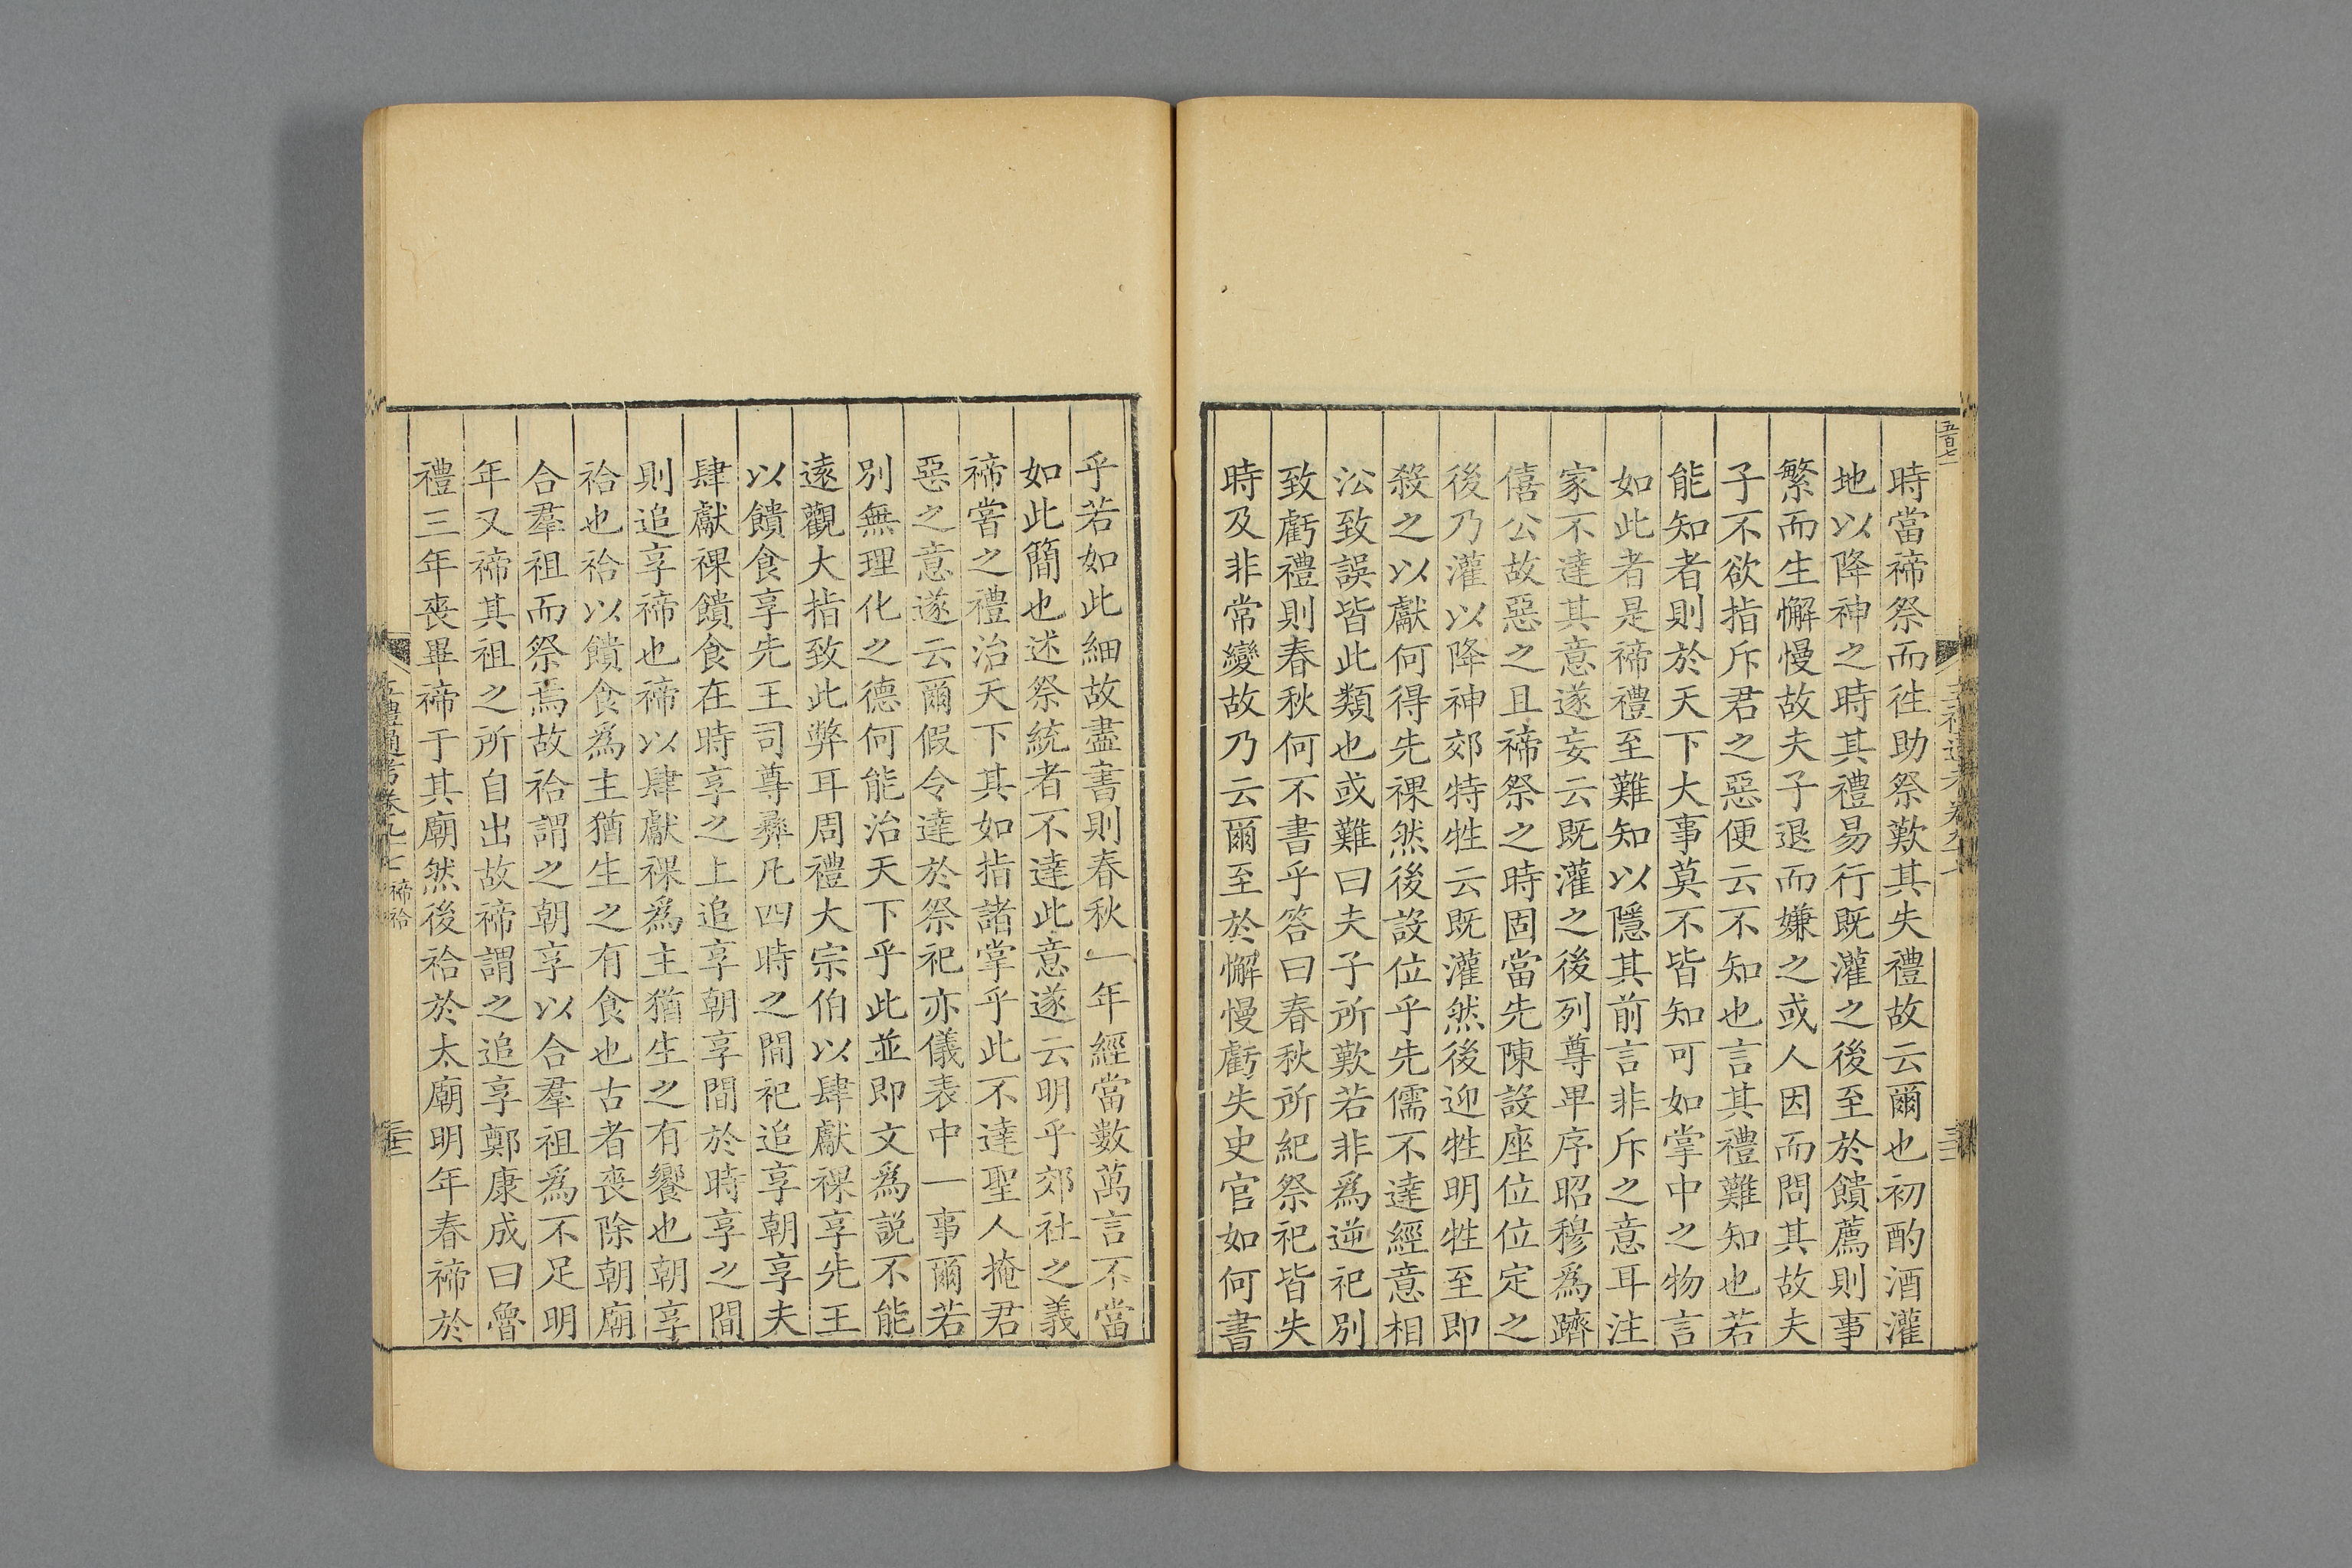 時當禘祭而往助祭歎其失禮故云爾也初酌酒灌
地以降神之時其禮易行既灌之後至於饋薦則事
繁而生懈慢故夫子退而嫌之或人因而問其故夫
子不欲指斥君之惡便云不知也言其禮難知也若
能知者則於天下大事莫不皆知可如掌中之物言
如此者是禘禮至難知以隱其前言非斥之意耳注
家不達其意遂妄云既灌之後列尊卑序昭穆為躋
僖公故惡之且禘祭之時固當先陳設座位位定之
後乃灌以降神郊特牲云既灌然後迎牲明牲至即
殺之以獻何得先祼然後設位乎先儒不達經意相
㳂致誤皆此類也或難曰夫子所歎若非爲逆祀別
致虧禮則春秋何不書乎答曰春秋所紀祭祀皆失
時及非常變故乃云爾至於懈慢虧失史官如何書
乎若如此細故盡書則春秋一年經當數萬言不當
如此簡也述祭統者不達此意遂云明乎郊社之義
禘嘗之禮治天下其如指諸掌乎此不達聖人掩君
惡之意遂云爾假令達於祭祀亦儀表中一事爾若
別無理化之德何能治天下乎此並即文爲説不能
逺觀大指致此弊耳周禮大宗伯以肆獻祼享先王
以饋食享先王司尊彝凡四時之間祀追享朝享夫
肆獻祼饋食在時享之上追享朝享間於時享之間
則追享禘也禘以肆獻祼爲主猶生之有饗也朝享
祫也祫以饋食爲主猶生之有食也古者喪除朝廟
合羣祖而祭焉故祫謂之朝享以合羣祖爲不足明
年又禘其祖之所自出故禘謂之追享鄭康成曰魯
禮三年喪畢禘于其廟然後祫於太廟明年春禘於
禘祫